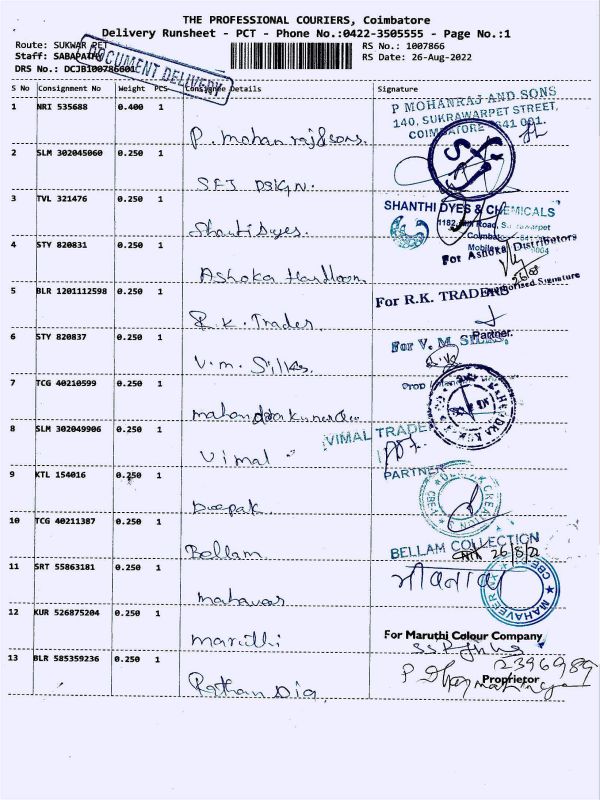 THE PROFESSIONAL COURIERS, Coimbatore
Delivery Runsheet - PCT - Phone No.:0422-3505555 - Page No.:1
Route: SUKWAR PET
RS No.: 1007866
Staff: SABAPATHY
RS Date: 26-Aug-2022
DRS No.: DCJB100786601
DOCUMENT DELIVERY
S No Consignment No Weight PCS Consignee Details Signature
1 NRI 535688 0.400 1 P. Mohanraj & sons.
P MOHANRAJ AND SONS
140, SUKRAWARPET STREET,
COIMBATORE 641 001.
2 SLM 302045060 0.250 1 SFJ DSIGN.
SFJ
3 TVL 321476 0.250 1 Shanti Dyes.
SHANTHI DYES & CHEMICALS
Road, Sukrawarpet
4 STY 820831 0.250 1 Ashoka Handloom
For Ashoka Distributors
Authorised Signature
5 BLR 1201112598 0.250 1 R.K. Trader.
For R.K. TRADERS
Partner.
6 STY 820837 0.250 1 V.M. Silks.
For V. M. SILKS
7 TCG 40210599 0.250 1
8 SLM 302049906 0.250 1 Vimal
VIMAL TRADE
PARTNER
9 KTL 154016 0.250 1 Deepak
CREATION
10 TCG 40211387 0.250 1 Bellam
BELLAM COLLECTION
26/8/22
11 SRT 55863181 0.250 1 Mahaveer
MAHAVEER
CBE
12 KUR 526875204 0.250 1 Maruthi
For Maruthi Colour Company
Proprietor
13 BLR 585359236 0.250 1 Rathan Dia